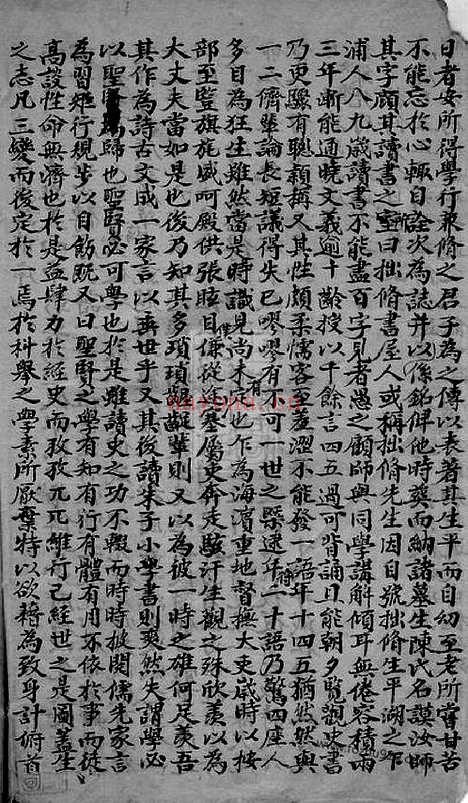 日者安所得學行兼脩之君子為之傳以表著其生平而自幼至老所嘗甘苦
不能忘於心輒自詮次為誌并以係銘俾他時葬而納諸墓生陳氏名謨汝師
其字顏其讀書之室曰拙脩書屋人或稱拙脩先生因自號拙脩生平湖之乍
浦人八九歲讀書不能盡百字見者愚之顧師與同學講解傾耳無倦容積兩
三年漸能通曉文義逾十齡授以千餘言四五過可背誦日能朝夕覽觀史書
乃更驟有聰穎稱又其性頗柔懦客至羞澀不能發一語年十四五猶然然與
一二儕輩論長短議得失已嘐嘐有不可一世之槩逮年二十語乃驚四座人
多目為狂生雖然當是時識見尚未定也乍為海濱重地督撫大吏歲時以按
部至暨旗旄威呵殿供張眩目傔從塗墓屬吏奔走駭汗生觀之殊欣羨以為
大丈夫當如是也後乃知其多瑣瑣齷齪輩則又以為彼一時之雄何足羨吾
其作為詩古文成一家言以鳴世乎又其後讀朱子小學書則爽然失謂學必
以聖賢為歸也聖賢必可學也於是雖讀史之功不輟而時時披閱儒先家言
為習矩行規步以自飭既又曰聖賢之學有知有行有體有用不依於事而徒
高談性命無濟也於是益肆力於經史而孜孜兀兀維行己經世之是圖蓋生
之志凡三變而後定於一焉於科舉之學素所厭棄特以欲藉為致身計俯首
nayona.cn